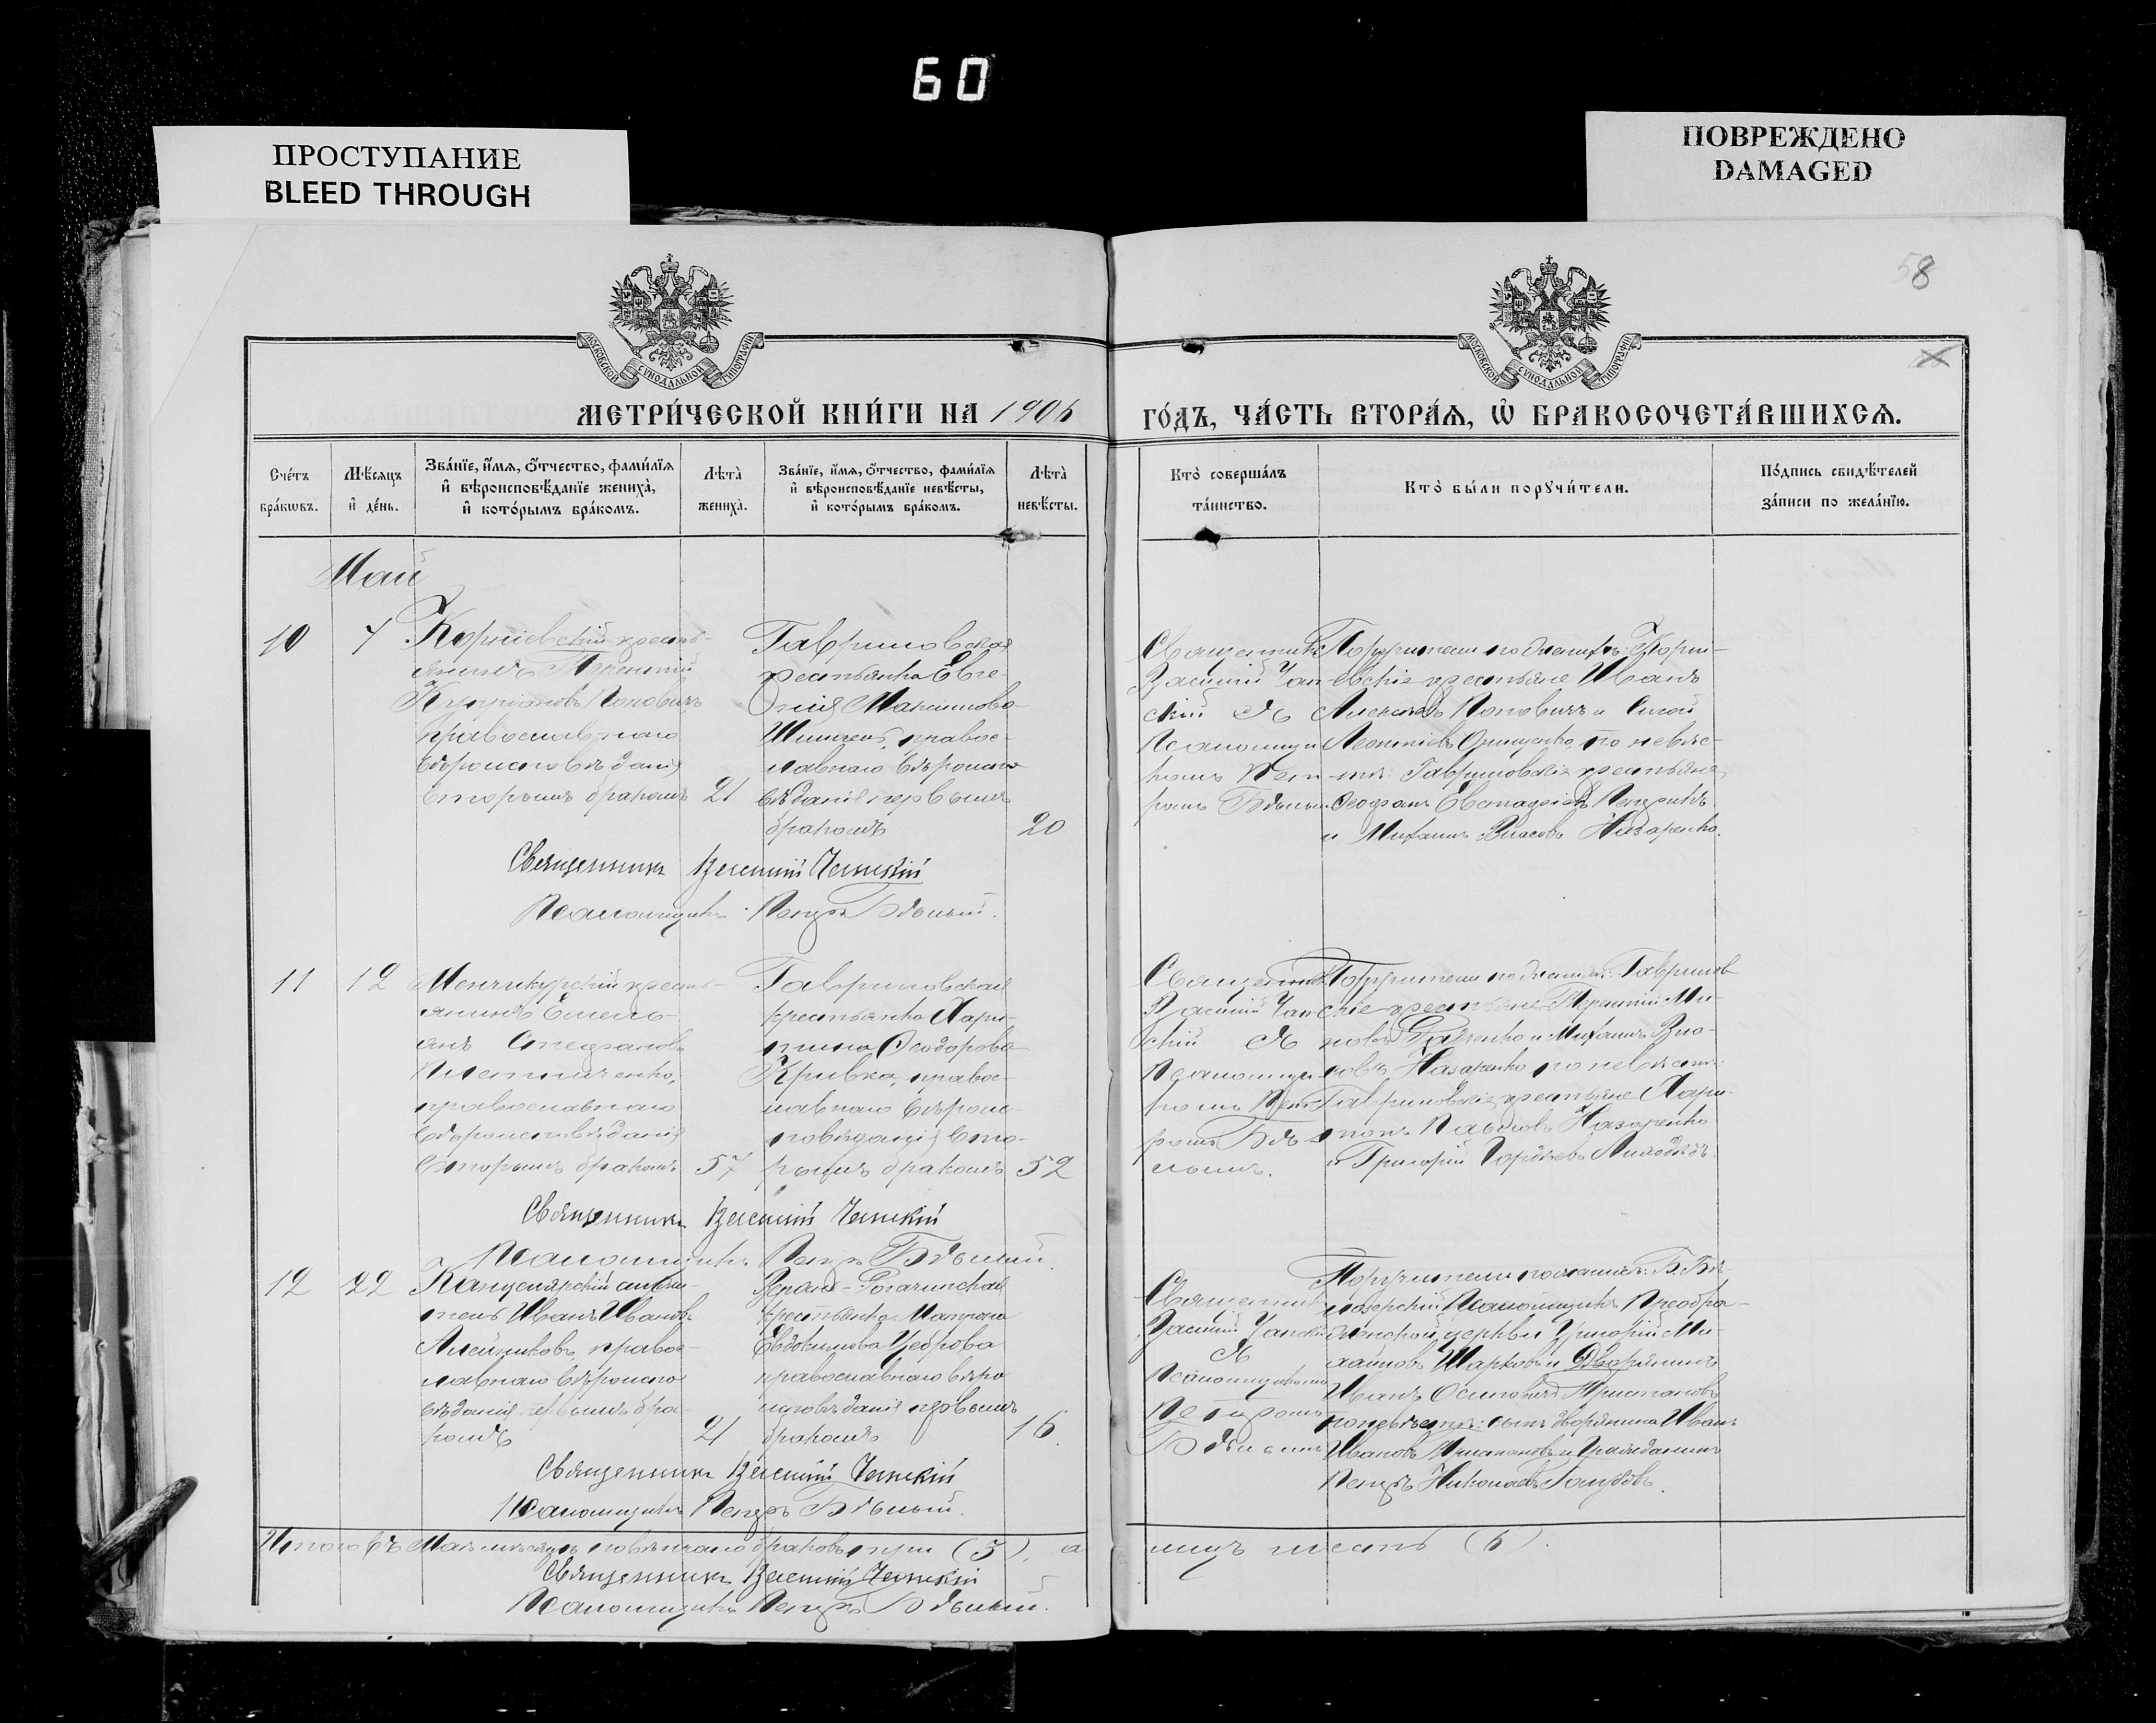 60
ПРОСТУПАНИЕ
BLEED THROUGH
ПОВРЕЖДЕНО
DAMAGED
58
МОСКОВСКОЙ СѴНОДАЛЬНОЙ ТИПОГРАФІИ
МОСКОВСКОЙ СѴНОДАЛЬНОЙ ТИПОГРАФІИ
МЕТРИ́ЧЕСКОЙ КНИ́ГИ НА 1906
ГО́ДЪ, ЧА́СТЬ ВТОРА́Я, Ѡ БРАКОСОЧЕТА́ВШИХСЯ.
Сче́тъ
бра́кѡвъ.
Мѣ́сяцъ
и҆ де́нь.
Зва́нїе, и҆́мя, ѻ҆́тчество, фами́лїя
и҆ вѣроисповѣ́данїе жениха̀,
и҆ кото́рымъ бра́комъ.
Лѣта̀
жениха̀.
Зва́нїе, и҆́мя, ѻ҆́тчество, фами́лїя
и҆ вѣроисповѣ́данїе невѣ́сты,
и҆ кото́рымъ бра́комъ.
Лѣта̀
невѣ́сты.
Кто̀ соверша́лъ
та́инство.
Кто̀ бы́ли порꙋчи́тели.
По́дпись свидѣ́телей
за́писи по жела́нїю.
Май
10
7
Корніевскій кресть-
янинъ Терентій
Купріановъ Поповичъ
православнаго
вѣроисповѣданія
вторымъ бракомъ
21
Гавриловская
крестьянка Евге-
нія Максимова
правос-
лавнаго вѣроиспо-
вѣданія первымъ
бракомъ
20
Священникъ
Василій Чап-
скій и
Псаломщи-
комъ Пет-
ромъ Бѣлым
Поручители по женихѣ: Корні-
евскіе крестьяне Иванъ
Алексѣевъ Поповичъ и
Леонтіевъ Онищенко, по невѣс-
тѣ: Гавриловскіе крестьяне
Ѳеофанъ
и Михаилъ Власовъ Назаренко.
Священникъ Василій Чапскій
Псаломщикъ Петръ Бѣлый.
11
12
Менчикурскій кресть-
янинъ Емель-
янъ Стефановъ
православнаго
вѣроисповѣданія
вторымъ бракомъ
57
Гавриловская
крестьянка Хари-
тина Ѳеодорова
Кривка, правос-
лавнаго вѣроис-
повѣданія вто-
рымъ бракомъ
52
Священникъ
Василій Чап-
скій и
Псаломщи-
комъ Пет-
ромъ Бѣ-
лымъ.
Поручители по женихѣ: Гаврилов-
скіе крестьяне Терентій Ми-
и Михаилъ Вла-
совъ Назаренко по невѣстѣ:
Гавриловскіе крестьяне Хари-
тонъ Павловъ Назаренко
и Григорій Гордѣевъ
Священникъ Василій Чапскій
Псаломщикъ Петръ Бѣлый.
12
22
Канцелярскій служи-
тель Иванъ Ивановъ
Алейниковъ, правос-
лавнаго вѣроиспо-
вѣданія первымъ бра-
комъ
21
Верхне-Рогачикская
крестьянка Матрона
Евдокимова Цеброва
православнаго вѣро
исповѣданія первымъ
бракомъ
16
Священник
Василій Чапскій
и
Псаломщикомъ
Петромъ
Бѣлымъ
Поручители по женихѣ: Б. Бѣ-
лозерскій Псаломщикъ Преобра-
женской церкви Григорій Ми-
хайловъ Шарковъ и Дворянинъ
Иванъ Осиповичъ
по невѣстѣ: сынъ дворянина Иванъ
Ивановъ и Гражданинъ
Петръ Николаевъ Голубовъ.
Священникъ Василій Чапскій
Псаломщикъ Петръ Бѣлый.
Итого въ Маѣ мѣсяцѣ повѣнчано браковъ три (3), а
лицъ шесть (6).
Священникъ Василій Чапскій
Псаломщикъ Петръ Бѣлый.